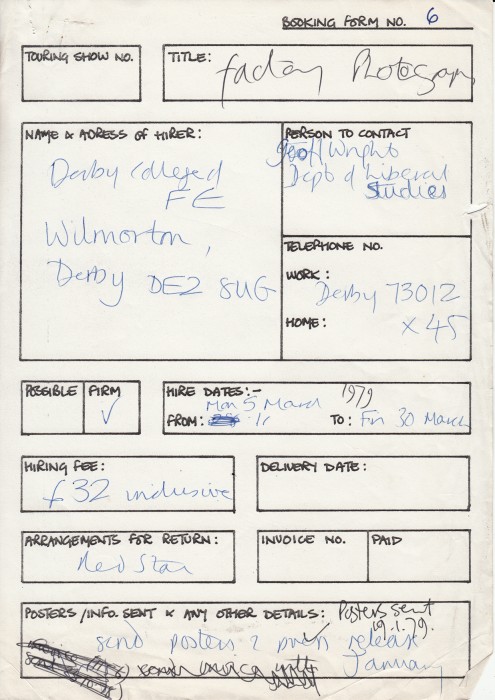 BOOKING FORM NO. 6
TOURING SHOW NO.
TITLE: factory Photograp
NAME & ADRESS OF HIRER:
Derby College of
FE
Wilmorton,
Derby DE2 8UG
PERSON TO CONTACT
Geoff Wright
Dept of Liberal
Studies
TELEPHONE NO.
WORK:
Derby 73012
HOME: x 45
POSSIBLE FIRM
✓
HIRE DATES:- 1979
Mon 5 March
FROM: TO: Fri 30 March
HIRING FEE:
£32 inclusive
DELIVERY DATE:
ARRANGEMENTS FOR RETURN:
Red Star
INVOICE NO. PAID
POSTERS/INFO. SENT & ANY OTHER DETAILS: Posters sent
19.1.79.
send posters & press release
January